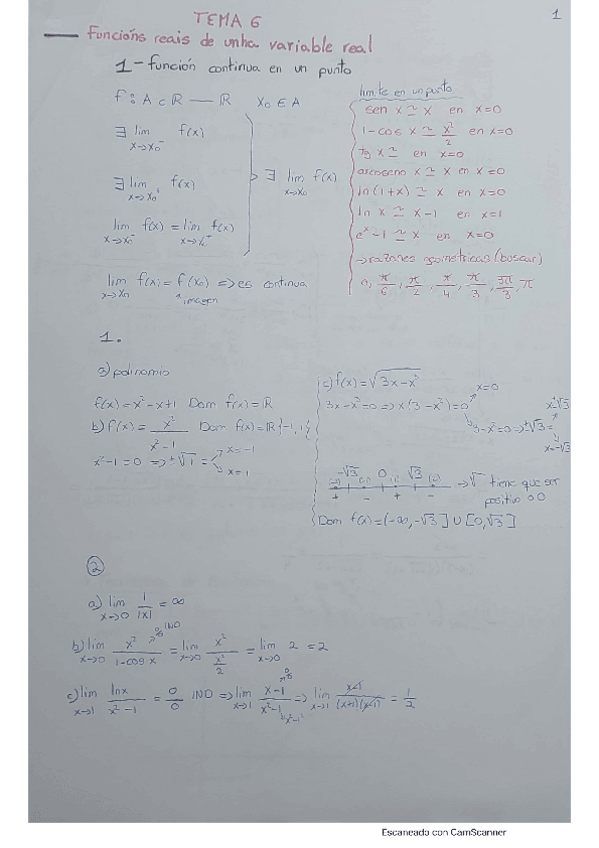 1
TEMA 6
Funcións reais de unha variable real
1- función continua en un punto
f: A ⊂ R — R   x₀ ∈ A
∃ lim f(x)
x→x₀⁻
∃ lim f(x)
x→x₀⁺
lim f(x) = lim f(x)
x→x₀⁻   x→x₀⁺
∃ lim f(x)
x→x₀
lim f(x) = f(x₀) => es continua
x→x₀
imagen
limite en un punto
sen x ≃ x en x=0
1-cos x ≃ x²/2 en x=0
tg x ≃ en x=0
arcoseno x ≃ x en x=0
ln(1+x) ≃ x en x=0
ln x ≃ x-1 en x=1
eˣ-1 ≃ x en x=0
→ razones geometricas (buscar)
0, π/6, π/2, π/4, π/3, 3π/3, π
1.
a) polinomio
f(x) = x²-x+1 Dom f(x) = R
b) f(x) = x²/(x²-1) Dom f(x) = R {-1, 1}
x²-1=0 => ±√1 =
x=-1
x=1
c) f(x) = √(3x-x³)
3x-x³=0 => x(3-x²)=0
x=0
3-x²=0 => ±√3 =
x=√3
x=-√3
-√3 0 √3
+ - + -
→ √ tiene que ser
positivo o 0
Dom f(x) = (-∞, -√3] ∪ [0, √3]
2
a) lim 1/|x| = ∞
x→0
b) lim x²/(1-cos x) = lim x²/(x²/2) = lim 2 = 2
0/0 IND
x→0   x→0   x→0
c) lim lnx/(x²-1) = 0/0 IND => lim (x-1)/(x²-1) => lim (x-1)/((x+1)(x-1)) = 1/2
x→1   x→1   x→1
0/0
x²-1²
Escaneado con CamScanner